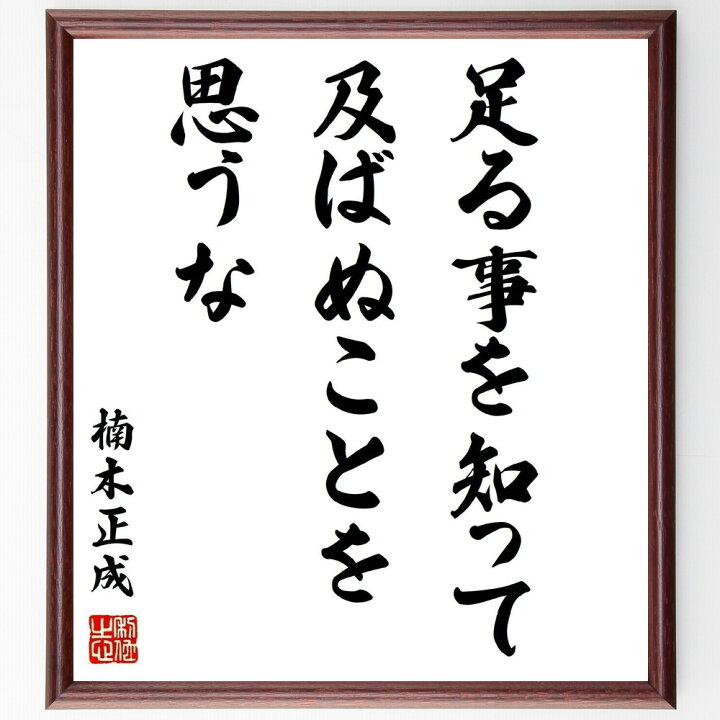 足る事を知って
及ばぬことを
思うな
楠木正成